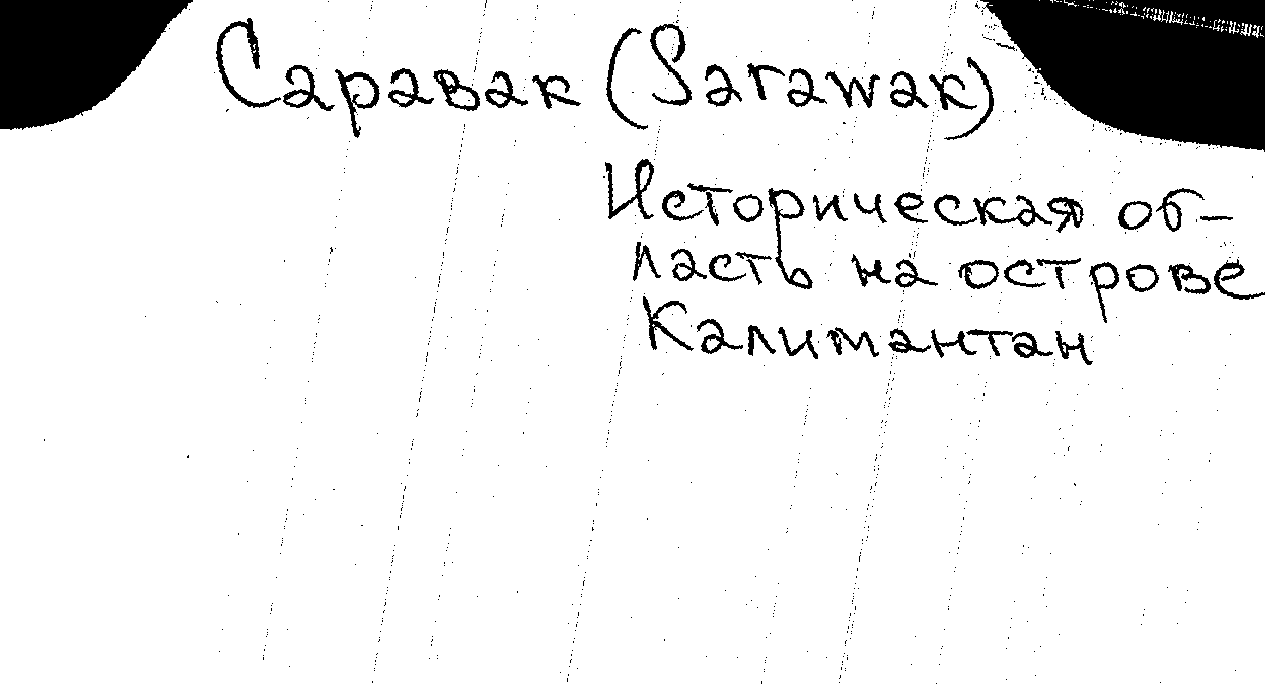 Саравак (Sarawak)
Историческая об-
ласть на острове
Калимантан